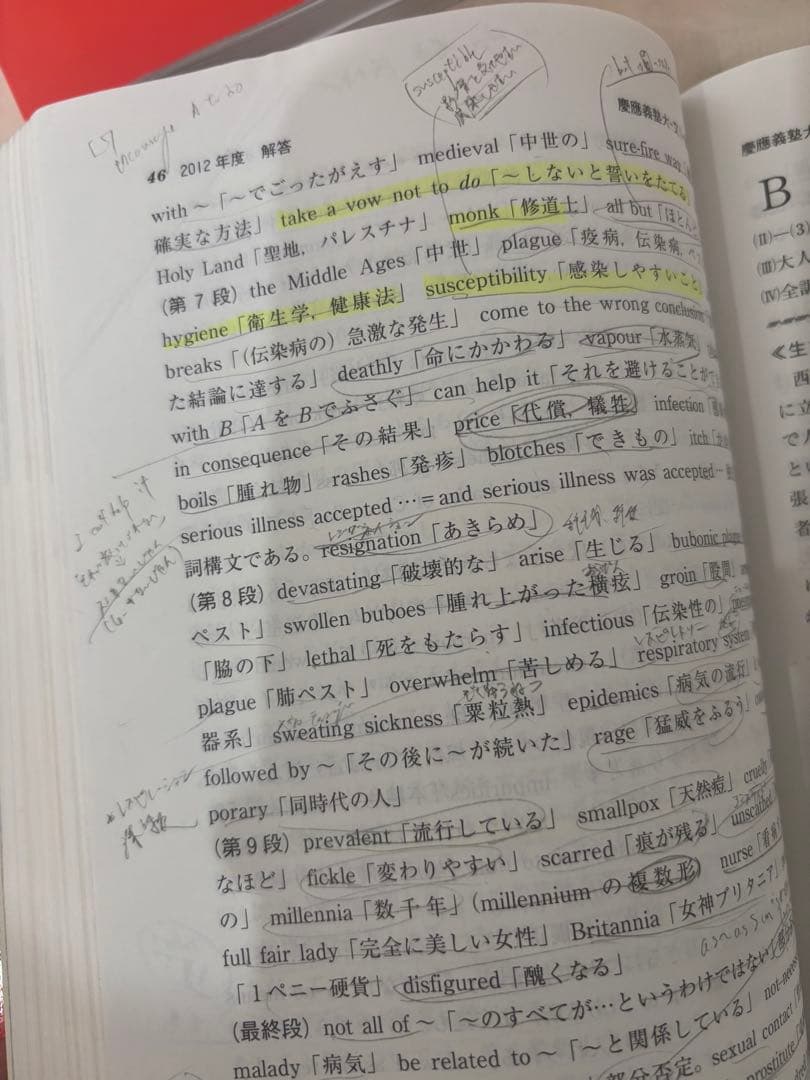 46 2012年度 解答
with ～「～でごったがえす」 medieval「中世の」 sure-fire way
確実な方法」 take a vow not to do「～しないと誓いをたてる」
Holy Land「聖地，パレスチナ」 monk「修道士」 all but「ほとんど
(第７段) the Middle Ages「中世」 plague「疫病，伝染病，ペ
hygiene「衛生学，健康法」 susceptibility「感染しやすいこと」
breaks「(伝染病の) 急激な発生」 come to the wrong conclusion
た結論に達する」 deathly「命にかかわる」 vapour「水蒸気」
with B「AをBでふさぐ」 can help it「それを避けることが
in consequence「その結果」 price「代償，犠牲」 infection
boils「腫れ物」 rashes「発疹」 blotches「できもの」 itch
serious illness accepted … = and serious illness was accepted…
詞構文である。 resignation「あきらめ」
(第８段) devastating「破壊的な」 arise「生じる」 bubonic plague
ペスト」 swollen buboes「腫れ上がった横痃」 groin「股間」
「脇の下」 lethal「死をもたらす」 infectious「伝染性の」
plague「肺ペスト」 overwhelm「苦しめる」 respiratory system
器系」 sweating sickness「粟粒熱」 epidemics「病気の流行」
followed by ～「その後に～が続いた」 rage「猛威をふるう」
porary「同時代の人」
(第９段) prevalent「流行している」 smallpox「天然痘」 cruelly
なほど」 fickle「変わりやすい」 scarred「痕が残る」 unscathed
の」 millennia「数千年」(millennium の複数形) nurse「看
full fair lady「完全に美しい女性」 Britannia「女神ブリタニア」
「１ペニー硬貨」 disfigured「醜くなる」
(最終段) not all of ～「～のすべてが…というわけではない」
malady「病気」 be related to ～「～と関係している」 not
部分否定。 sexual contact
prostitute
慶應義塾大
susceptible
encourage A to do
慶應義塾
B
(Ⅱ)―(3)
(Ⅲ)大人
(Ⅳ)全訳
≪生
西
に立
で人
と
張
者